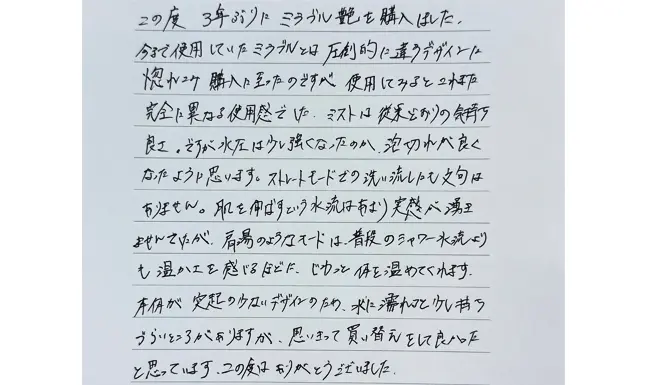 この度 3年ぶりに ミラブル艶を購入しました。
今まで使用していたミラブルとは圧倒的に違うデザインに
惚れこみ 購入に至ったのですが 使用してみると これまた
完全に異なる使用感でした。ミストは従来どおりの気持ち
良さ。ですが水圧は少し強くなったのか、泡切れが良く
なったように思います。ストレートモードでの洗い流しにも文句は
ありません。肌を伸ばすという水流はあまり実感が湧き
ませんでしたが、肩湯のようなモードは、普段のシャワー水流より
も温かさを感じるほどに、じわっと体を温めてくれます。
本体が突起の少ないデザインのため、水に濡れると少し持ち
づらいところがありますが、思いきって買い替えをして良かった
と思っています。この度はありがとうございました。